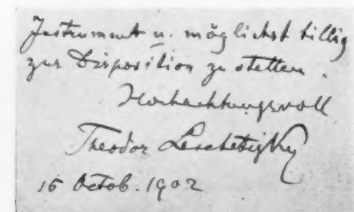 Instrument u. möglichst billig
zur Disposition zu stellen.
Hochachtungsvoll
Theodor Leschetizky
15 Octob. 1902